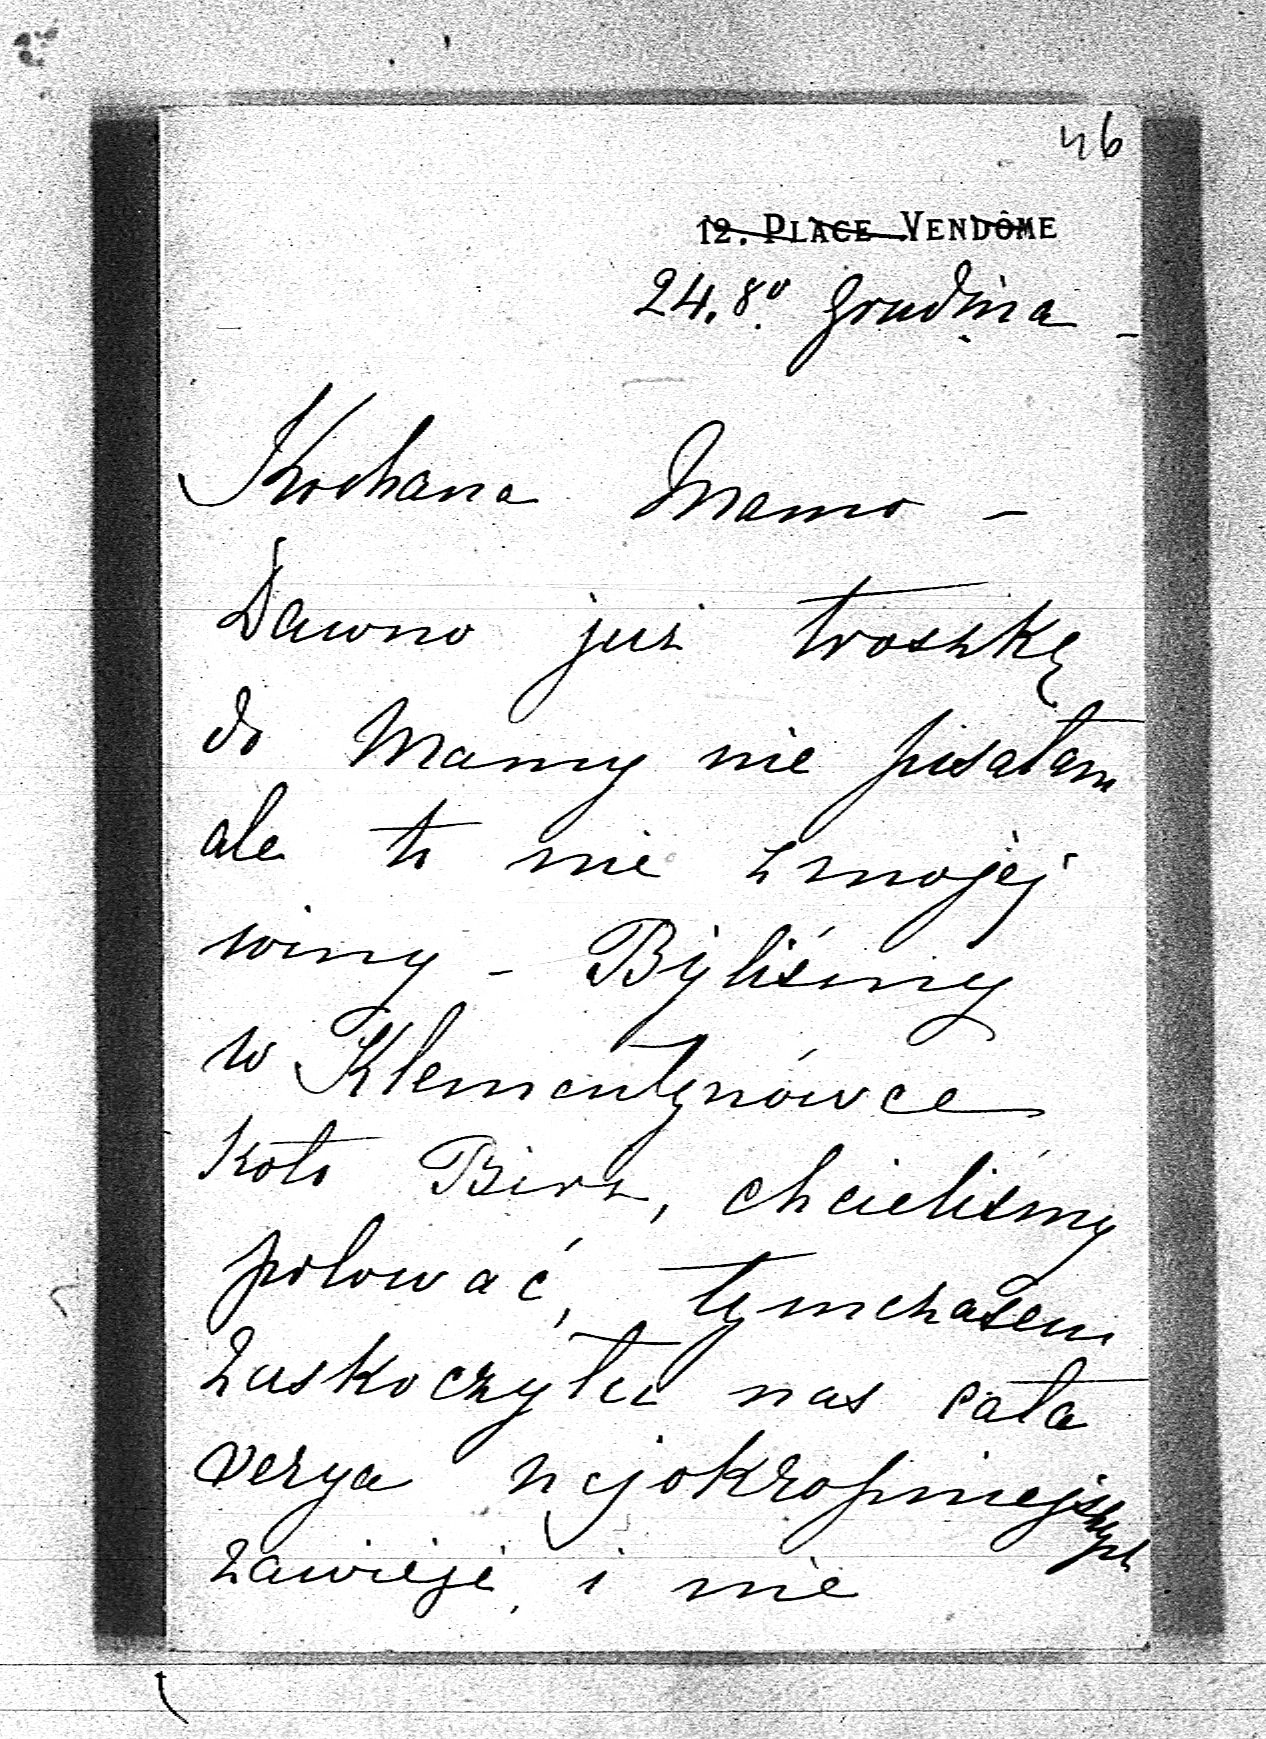 46
12. PLACE VENDÔME
24. 8º Grudnia –
Kochana Mamo –
Dawno już troszkę
do Mamy nie pisałam
ale to nie z mojej
winy – Byliśmy
w Klementynówce
koło Birż, chcieliśmy
polować, tymczasem
zaskoczyła nas cała
serya najokropniejszych
zawieji, i nie